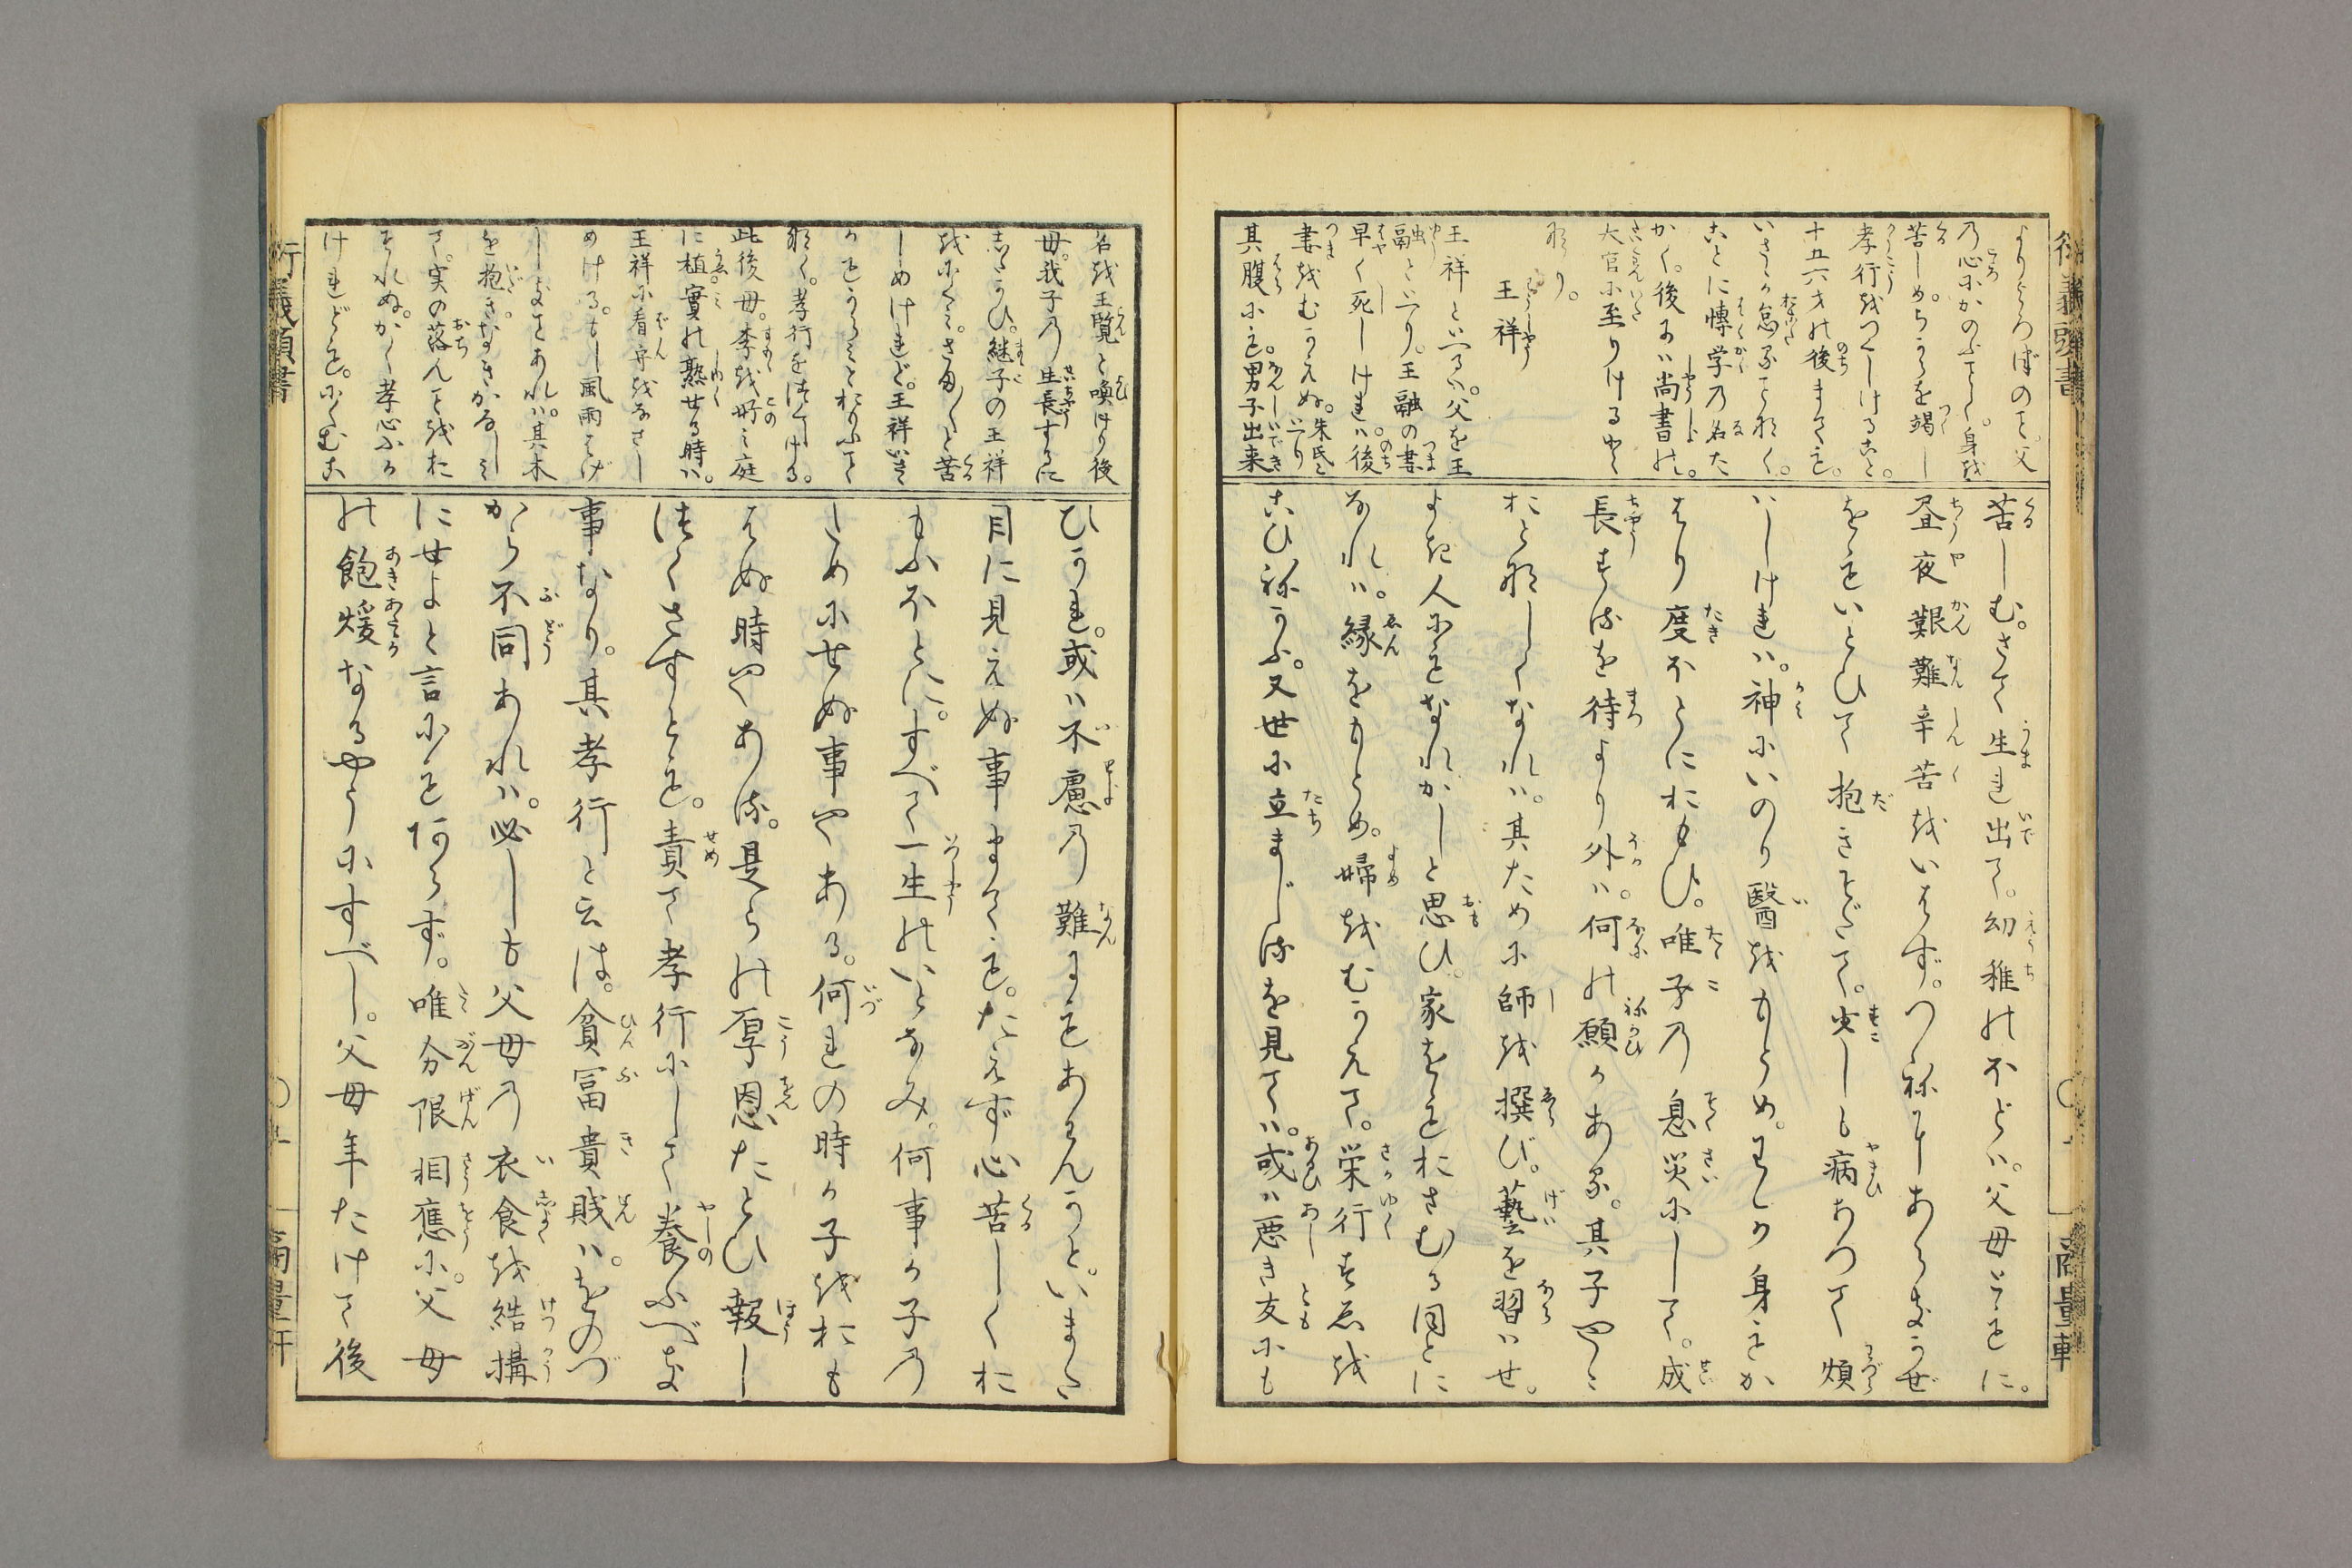 よりよろづのことも父
乃心にかのふことく身を
苦しめちからを竭し
孝行をつくしけること
十五六才の後までも
いさゝか怠ることなく
ことに博学の名た
かく後には尚書の
大官に至りけるゆへ
なり
王祥
王祥といへるハ父を王
融といへり王融の妻
早く死しけれバ後
妻をむかえぬ朱氏と
いへり
其腹にも男子出来
苦しむさて生れ出て幼稚のほどハ父母ともに
昼夜艱難辛苦をいはずつねにあらきかぜ
をもいとひて抱きそだて少しも病あつて煩
いしけれハ神にいのり医をもとめわが身をか
はり度ほとにおもひ唯子乃息災にして成
長するを待より外ハ何の願かある其子やゝ
おとなしくなれハ其ために師を撰び藝を習ハせ
よき人にもなれかしと思ひ家をもおさむる囙とに
なれハ縁をもとめ婦をむかえて栄行すゑを
こひねかふ又世に立まじるを見てハ或ハ悪き友にも
名を王覧と喚けり後
母我子乃生長するに
したかひ継子の王祥
をにくミさま〴〵と苦
しめけれど王祥いさゝ
かもうらミとおもふこと
なく孝行を尽しける
此後母李を好ミ庭
に植實の熟せる時ハ
王祥に看守をなさし
めける若し風雨はげ
しきことあれハ其木
を抱きなきかなしミ
て実の落んことをお
それぬかく孝心ふか
けれども にくむこ
ひかれ或ハ不慮乃難にもあはんかといまた
目に見えぬ事までもたえず心苦しくお
もふほとにすべて一生のいとなみ何事か子乃
ためにせぬ事やある何れの時か子をおも
はぬ時やある是らの厚恩たとひ報し
つくさすとも責て孝行にして養ふべき
事なり其孝行と云は貧富貴賎ハをのづ
から不同あれハ必しも父母乃衣食を結構
にせよと言にもあらず唯分限相應に父母
の飽煖なるやうにすべし父母年たけて後